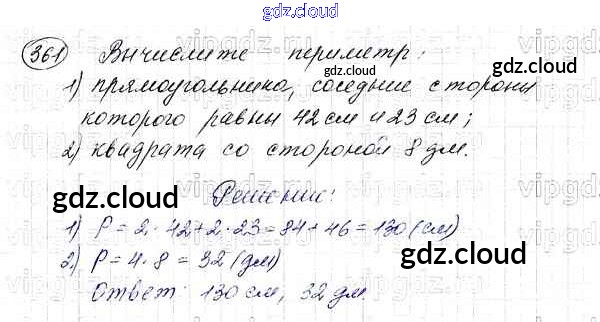 gdz.cloud
361 Вычислите периметр:
1) прямоугольника, соседние стороны
которого равны 42 см и 23 см;
2) квадрата со стороной 8 дм.
gdz.cloud
gdz.cloud
gdz.cloud
Решение:
1) P = 2 · 42 + 2 · 23 = 84 + 46 = 130 (см)
2) P = 4 · 8 = 32 (дм)
gdz.cloud
Ответ: 130 см, 32 дм.